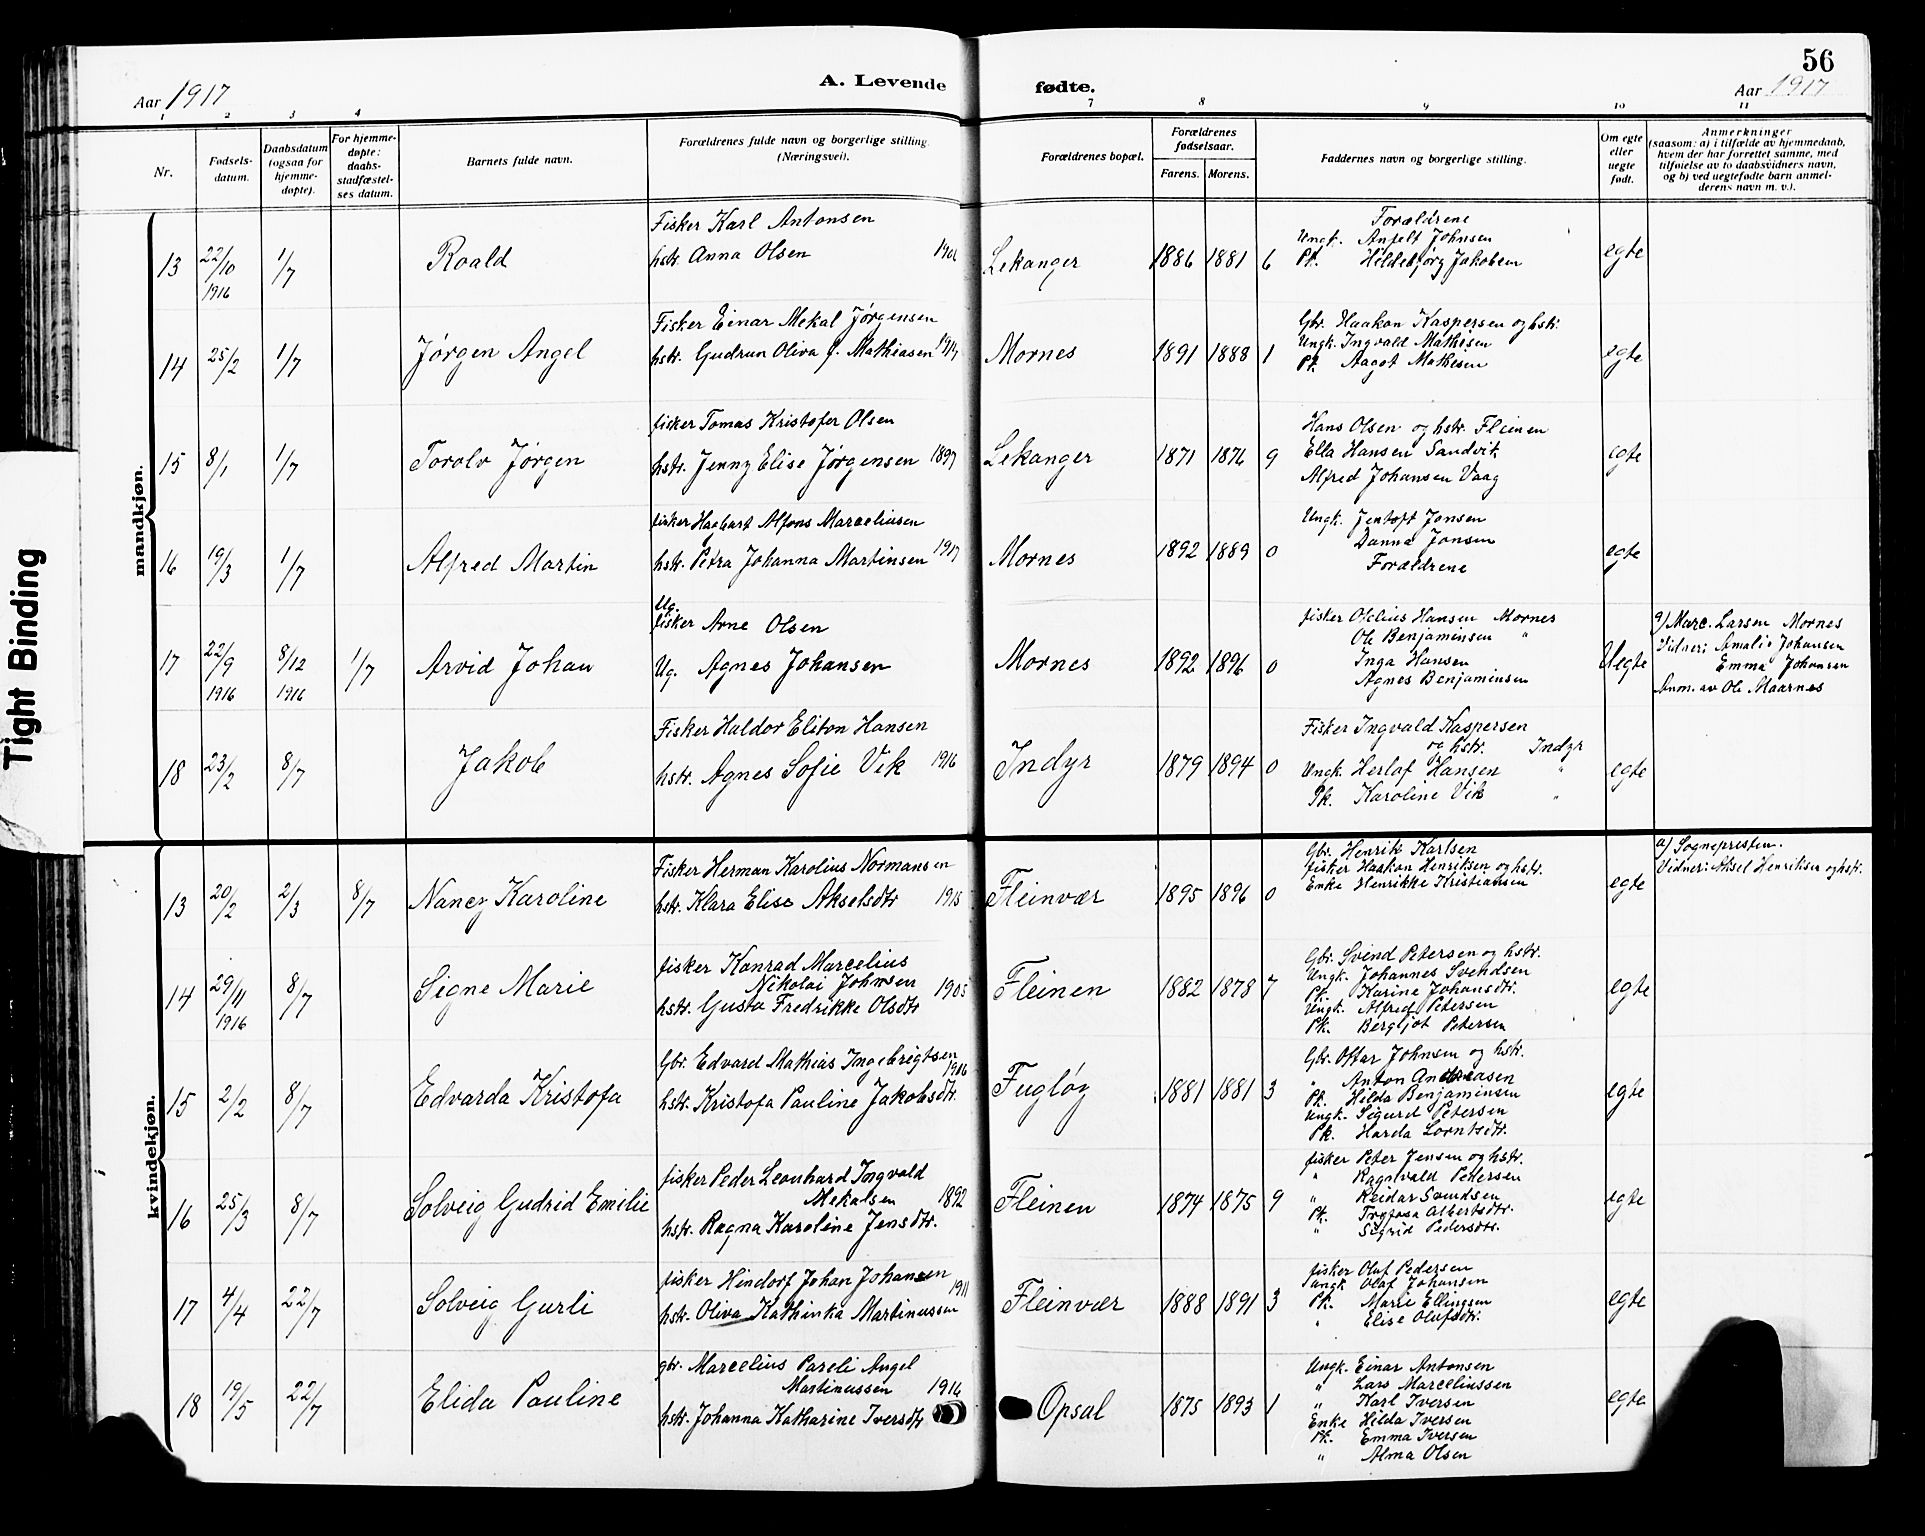 56
Aar 1917
A. Levende
fødte.
Aar 1917
1 2 3 4 7 8 9 10 11
Nr.
Fødsels-
datum.
Daabsdatum
(ogsaa for
hjemme-
døpte).
For hjemme-
døpte:
daabs-
stadfæstel-
ses datum.
Barnets fulde navn.
Forældrenes fulde navn og borgerlige stilling.
(Næringsvei).
Forældrenes bopæl.
Forældrenes
fødselsaar.
Farens. Morens.
Faddernes navn og borgerlige stilling.
Om egte
eller
uegte
født.
Anmerkninger
(saasom: a) i tilfælde av hjemmedaab,
hvem der har forrettet samme, med
tilføielse av to daabsvidners navn,
og b) ved uegtefødte barn anmel-
derens navn m. v.).
Tight Binding
mandkjøn.
13 22/10 1916 1/7 Roald
Fisker Karl Antonsen
hstr. Anna Olsen
Lekanger 1886 1881 6
Forældrene
Ungk. Anfelt Johnsen
Pk. Hildebjørg Jakobsen
egte
14 25/2 1/7 Jørgen Angel
Fisker Einar Mekal Jørgensen
hstr. Gudrun Oliva J. Mathiasen
Mornes 1891 1888 1
Gbr. Haakon Kaspersen og hstr.
Ungk. Ingvald Mathisen
Pk. Aagot Mathisen
egte
15 8/1 1/7 Torolv Jørgen
fisker Tomas Kristofer Olsen
hstr. Jenny Elise Jørgensen 1897
Lekanger 1871 1876 9
Hans Olsen og hstr. Fleinen
Ella Hansen Sandvik
Alfred Johansen Vaag
egte
16 19/3 1/7 Alfred Martin
fisker Hagbart Alfons Marceliusen
hstr. Petra Johanna Martinsen 1917
Mornes 1892 1889 0
Ungk. Jentoft Jonsen
Danna Jonsen
Forældrene
egte
17 22/9 1916 8/12 1916 1/7 Arvid Johan
Ug.
fisker Arne Olsen
Ug. Agnes Johansen
Mornes 1892 1896 0
fisker Olelius Hansen Mornes
Ole Benjaminsen "
Inga Hansen
Agnes Benjaminsen
Uegte
a) Marc. Larsen Mornes
Vidner: Amalie Johansen
Emma Johansen
Anm. av Ole Maarnes
18 23/2 8/7 Jakob
Fisker Haldor Eliton Hansen
hstr. Agnes Sofie Vik 1916
Indyr 1879 1894 0
Fisker Ingvald Kaspersen
og hstr. Indyr
Ungk. Herlof Hansen "
Pk. Karoline Vik "
egte
kvindekjøn.
13 20/2 2/3 8/7 Nancy Karoline
Fisker Herman Karolius Normansen
hstr. Klara Elise Akselsdtr 1915
Fleinvær 1895 1896 0
Gbr. Henrik Karlsen
fisker Haakon Henriksen og hstr.
Enke Henrikke Kristiansen
egte
a) Sognepresten.
Vidner: Aksel Henriksen og hstr.
14 29/11 1916 8/7 Signe Marie
fisker Konrad Marcelius
Nikolai Johnsen
hstr. Gusta Fredrikke Olsdtr 1905
Fleinen 1882 1878 7
Gbr. Svend Petersen og hstr.
Ungk. Johannes Svendsen
Pk. Karine Johansdtr.
Ungk. Alfred Petersen
Pk. Bergljot Petersen
egte
15 2/2 8/7 Edvarda Kristofa
Gbr. Edvard Mathias Ingebrigtsen
1906
hstr. Kristofa Pauline Jakobsdtr.
Fugløy 1881 1881 3
Gbr. Ottar Johnsen og hstr.
" Anton Andreasen
Pk. Hilda Benjaminsen
Ungk. Sigurd Petersen
Pk. Harda Lorntsdtr.
egte
16 25/3 8/7 Solveig Gudrid Emilie
fisker Peder Leonhard Ingvald
Mekalsen 1892
hstr. Ragna Karoline Jensdtr.
Fleinen 1874 1875 9
fisker Peter Jensen og hstr.
" Ragnvald Pedersen
" Reidar Svendsen
Pk. Trefosa Albertsdtr.
" Sigrid Pedersdtr.
egte
17 4/4 22/7 Solveig Gurli
fisker Hindorf Johan Johansen
1911
hstr. Oliva Kathinka Martinussen
Fleinvær 1888 1891 3
fisker Oluf Pedersen
Ungk Olaf Johansen
Pk. Marie Ellingsen
" Elise Olufsdtr.
egte
18 19/5 22/7 Elida Pauline
gbr. Marcelius Pareli Angel
Martinussen 1916
hstr. Johanna Katharine Iversdtr
Opsal 1875 1893 1
Ungk. Einar Antonsen
" Lars Marceliussen
" Karl Iversen
Enke Hilda Iversen
Pk. Emma Iversen
" Alma Olsen
egte